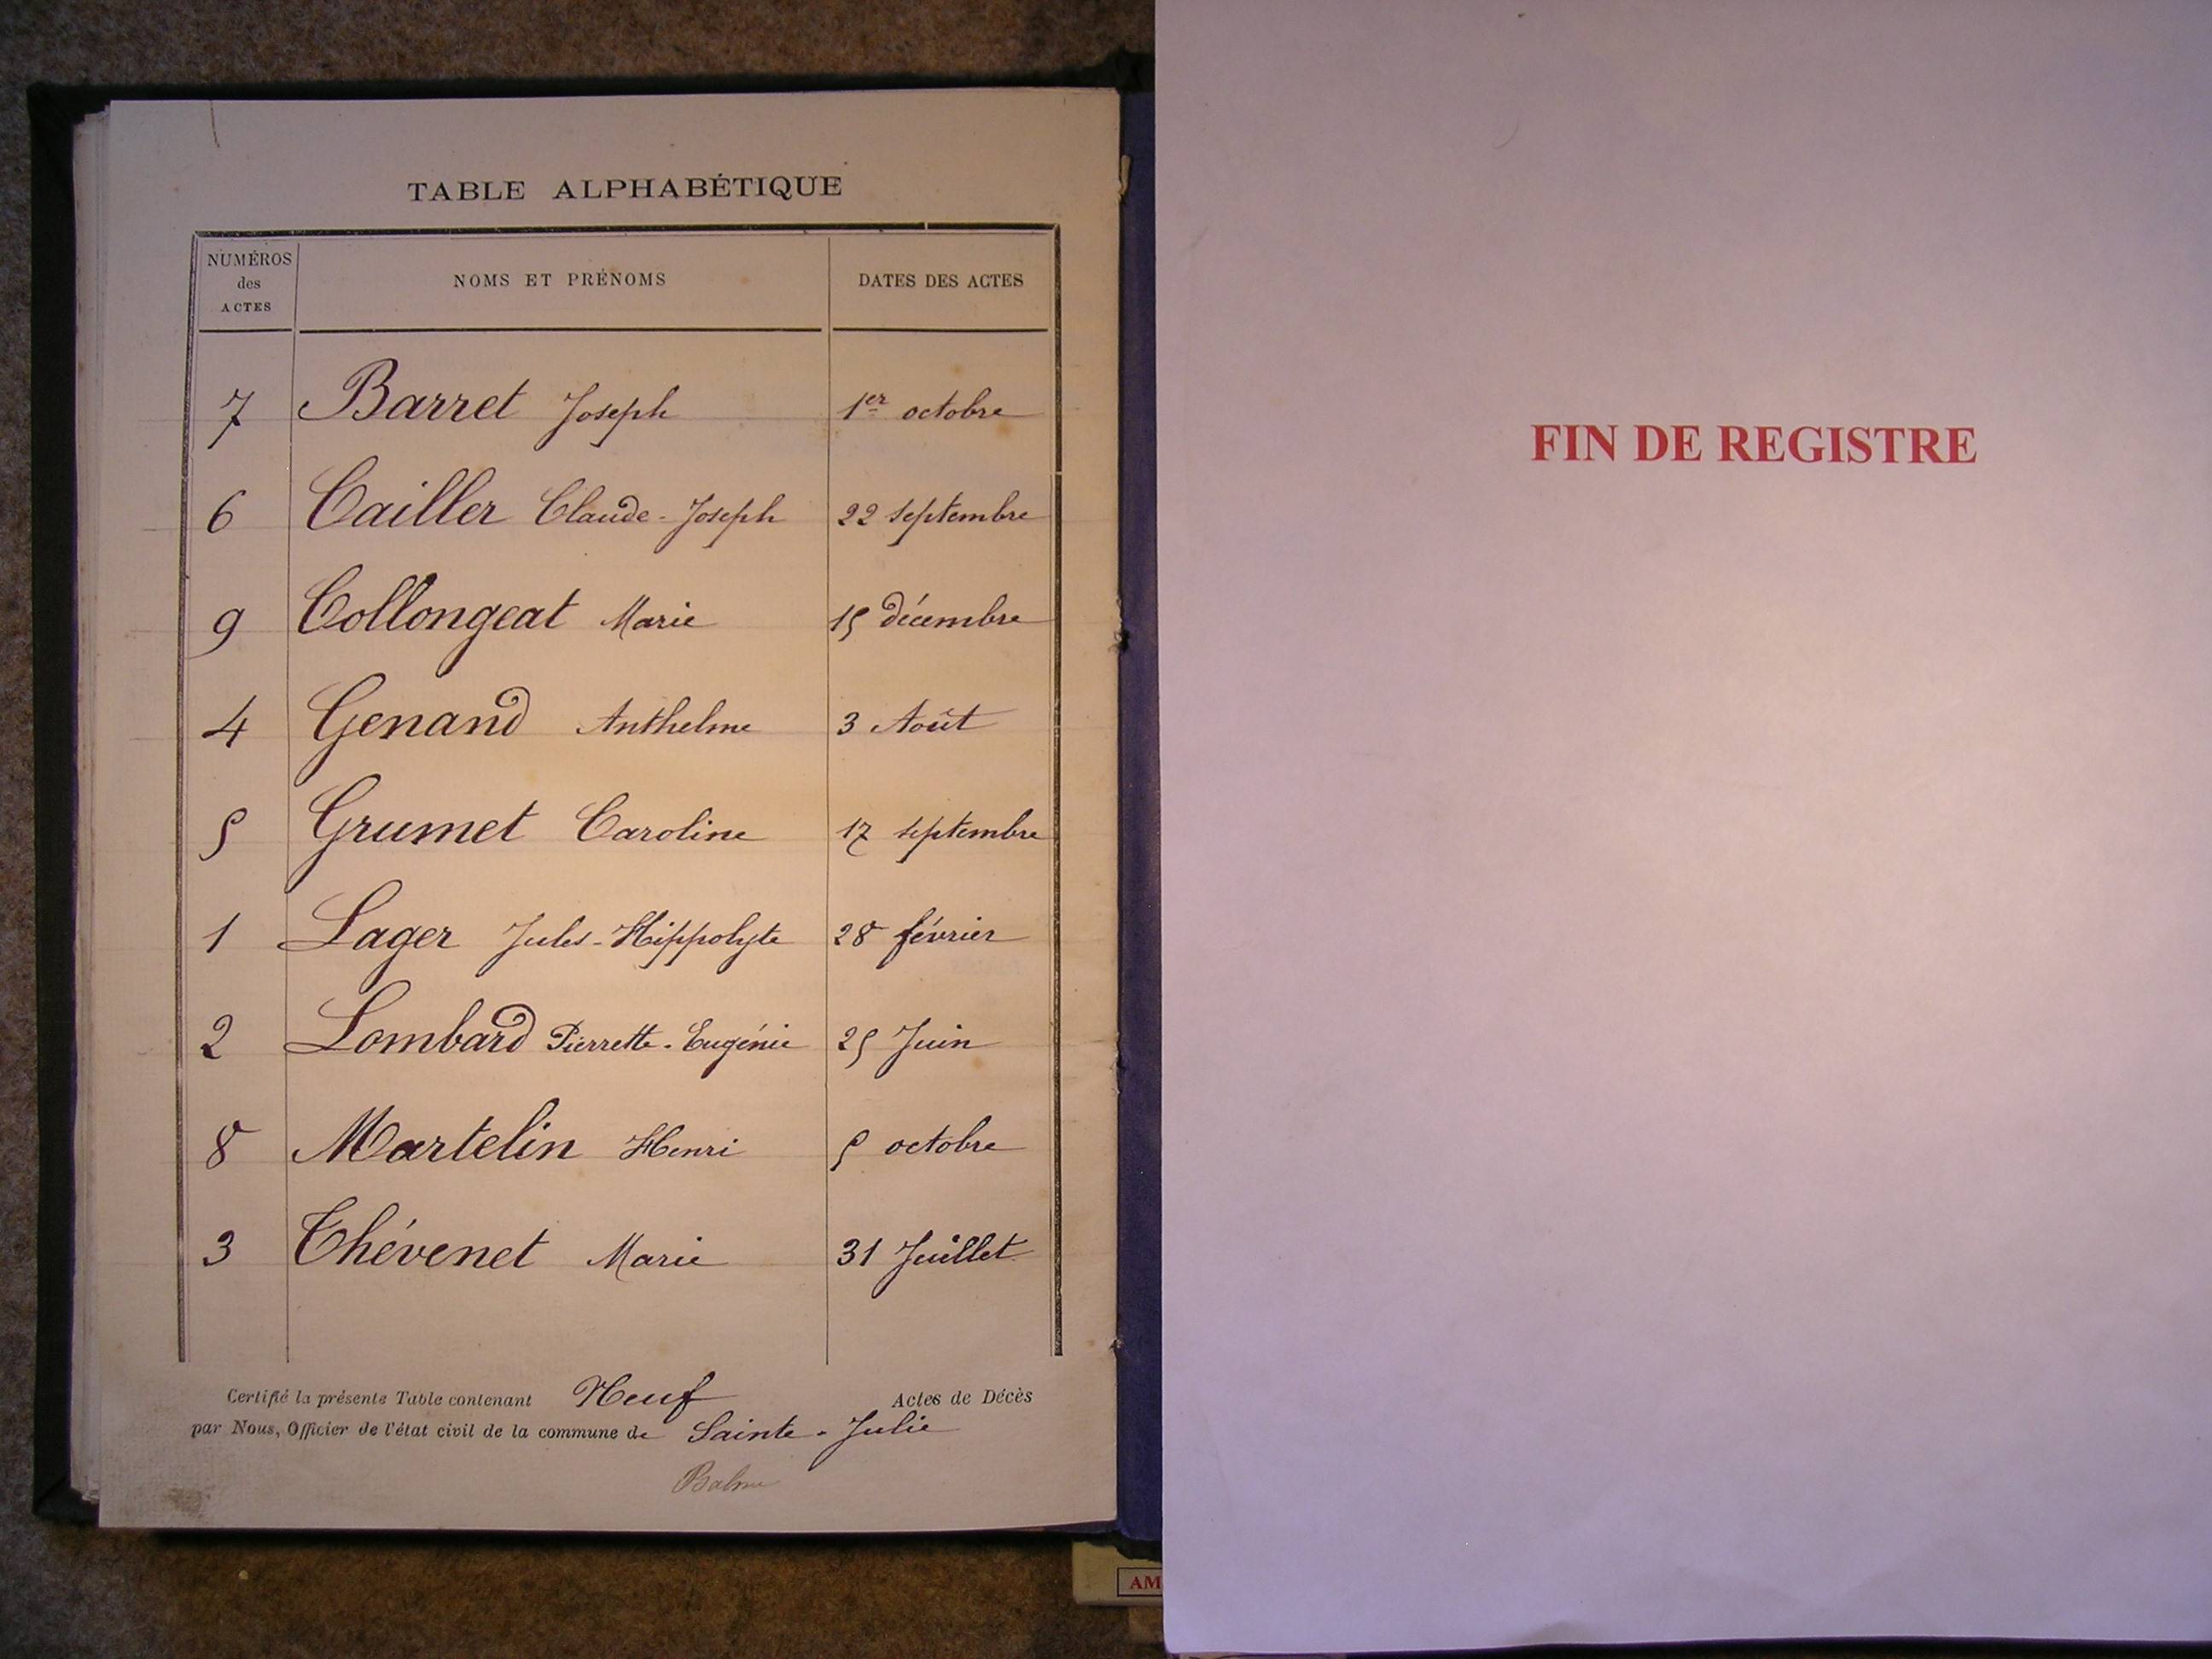 TABLE ALPHABÉTIQUE
NUMÉROS des ACTES NOMS ET PRÉNOMS DATES DES ACTES
7 Barret Joseph 1er octobre
6 Cailler Claude-Joseph 22 septembre
9 Collongeat Marie 15 décembre
4 Genand Anthelme 3 Août
5 Grumet Caroline 17 septembre
1 Lager Jules-Hippolyte 28 février
2 Lombard Pierrette-Eugénie 25 Juin
8 Martelin Henri 5 octobre
3 Thévenet Marie 31 Juillet
Certifié la présente Table contenant Neuf Actes de Décès
par Nous, Officier de l'état civil de la commune de Sainte-Julie
FIN DE REGISTRE
AM